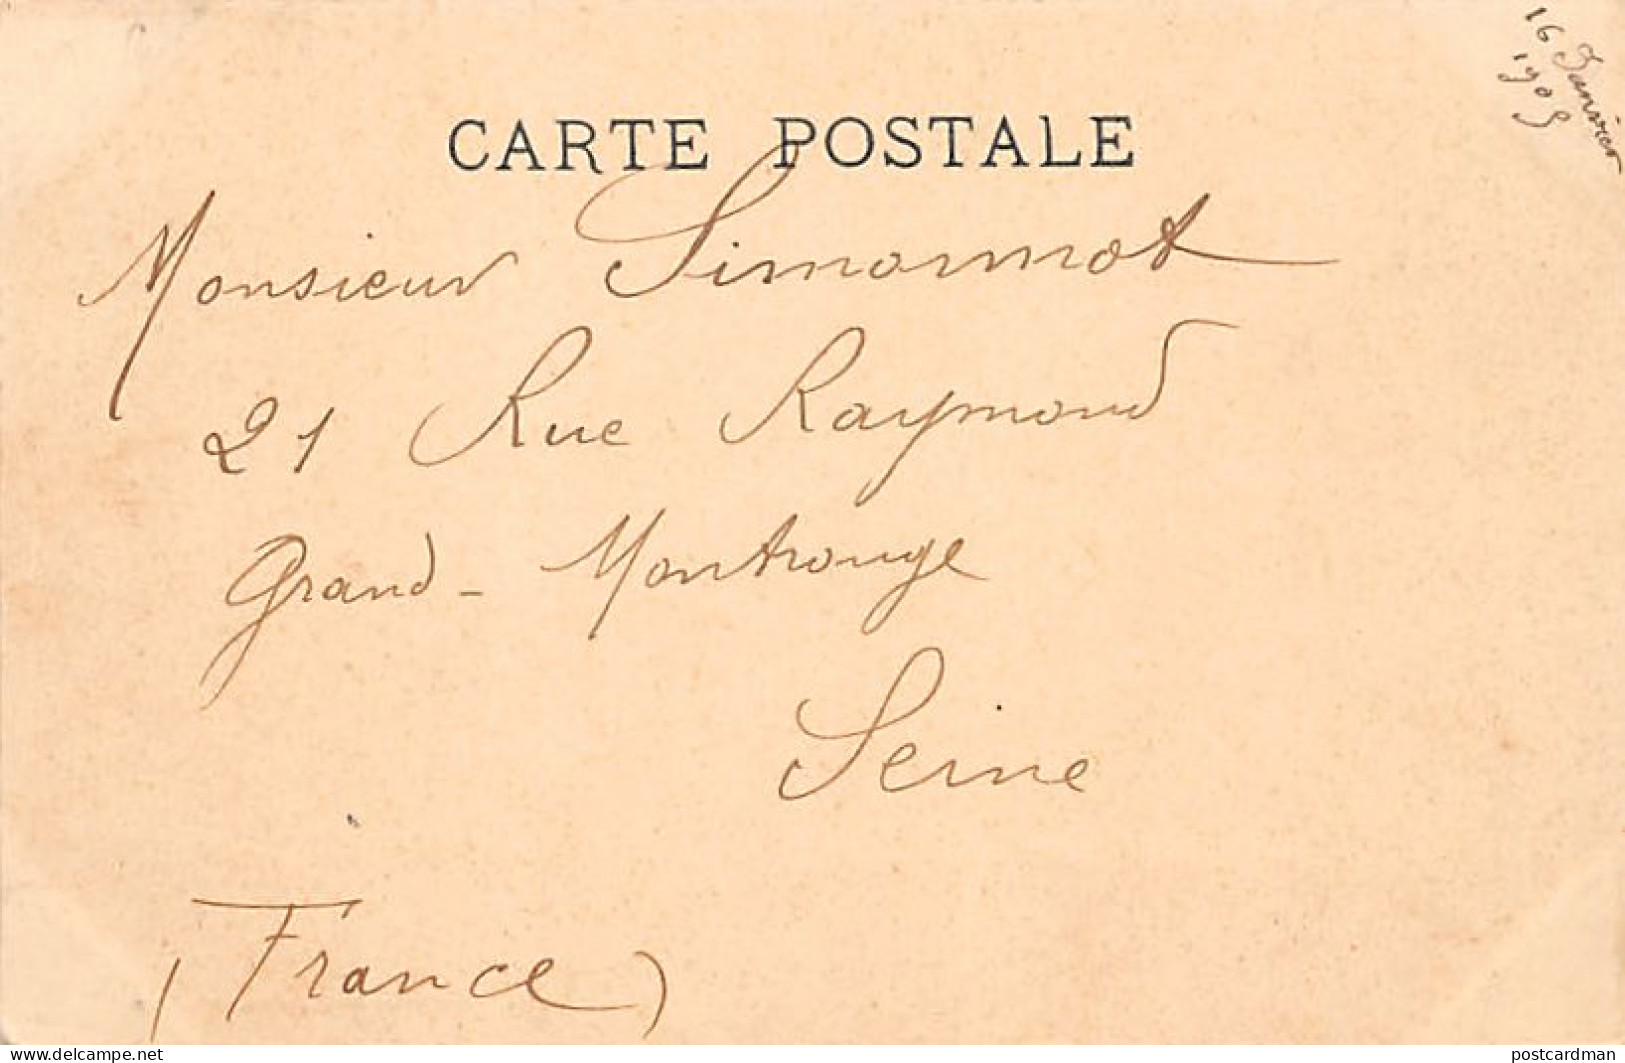 16 Janvier
1905
CARTE POSTALE
Monsieur Simonnot
21 Rue Raymond
Grand-Montrouge
Seine
(France)
www.delcampe.net postcardman